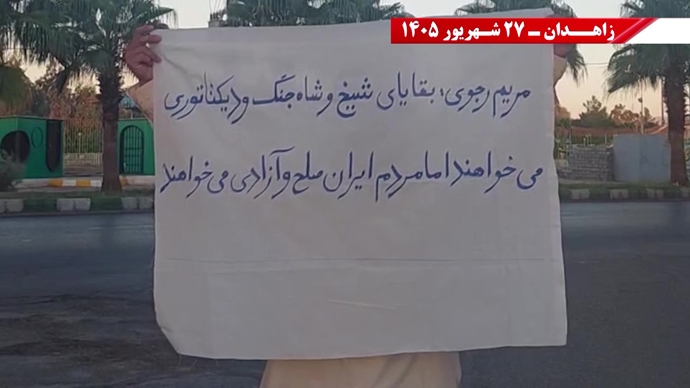 زاهـدان ـ ۲۷ شهریور ۱۴۰۵
مریم رجوی: بقایای شیخ و شاه جنگ و دیکتاتوری
می‌خواهند اما مردم ایران صلح و آزادی می‌خواهند